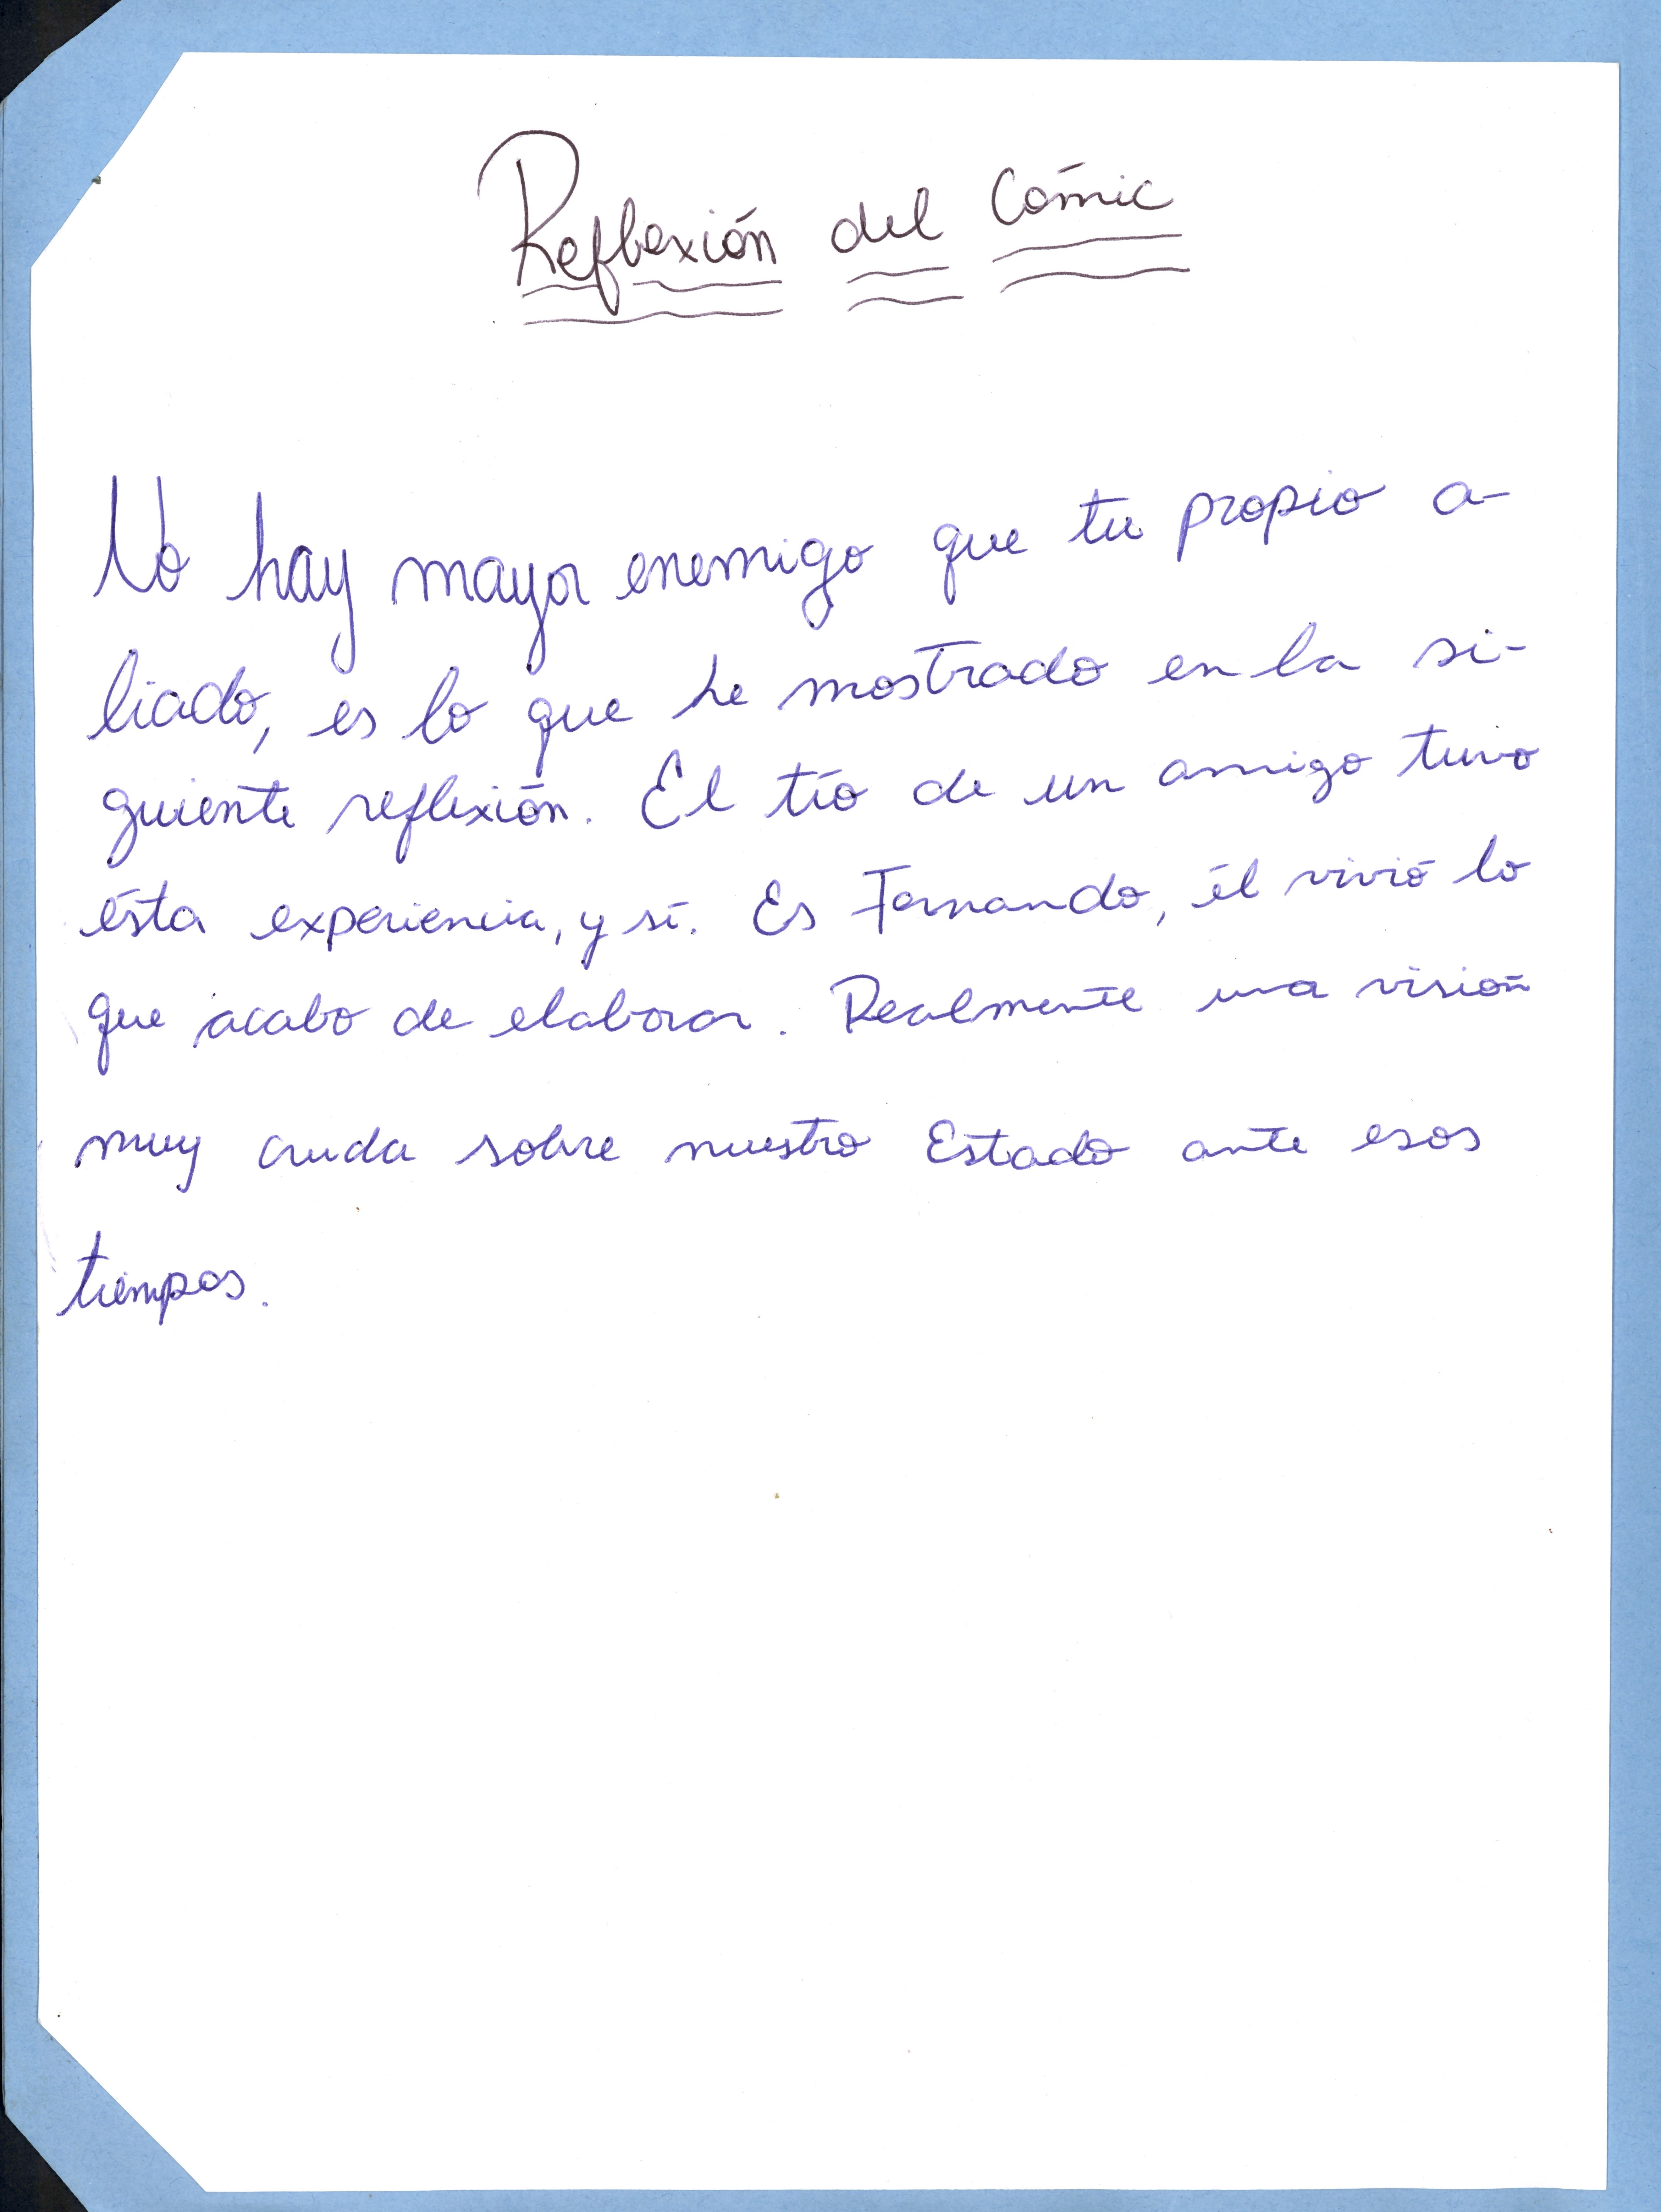 Reflexión del Cómic
No hay mayor enemigo que tu propio a-
liado, es lo que he mostrado en la si-
guiente reflexión. El tío de un amigo tuvo
ésta experiencia, y sí. Es Fernando, él vivió lo
que acabo de elaborar. Realmente una visión
muy cruda sobre nuestro Estado ante esos
tiempos.